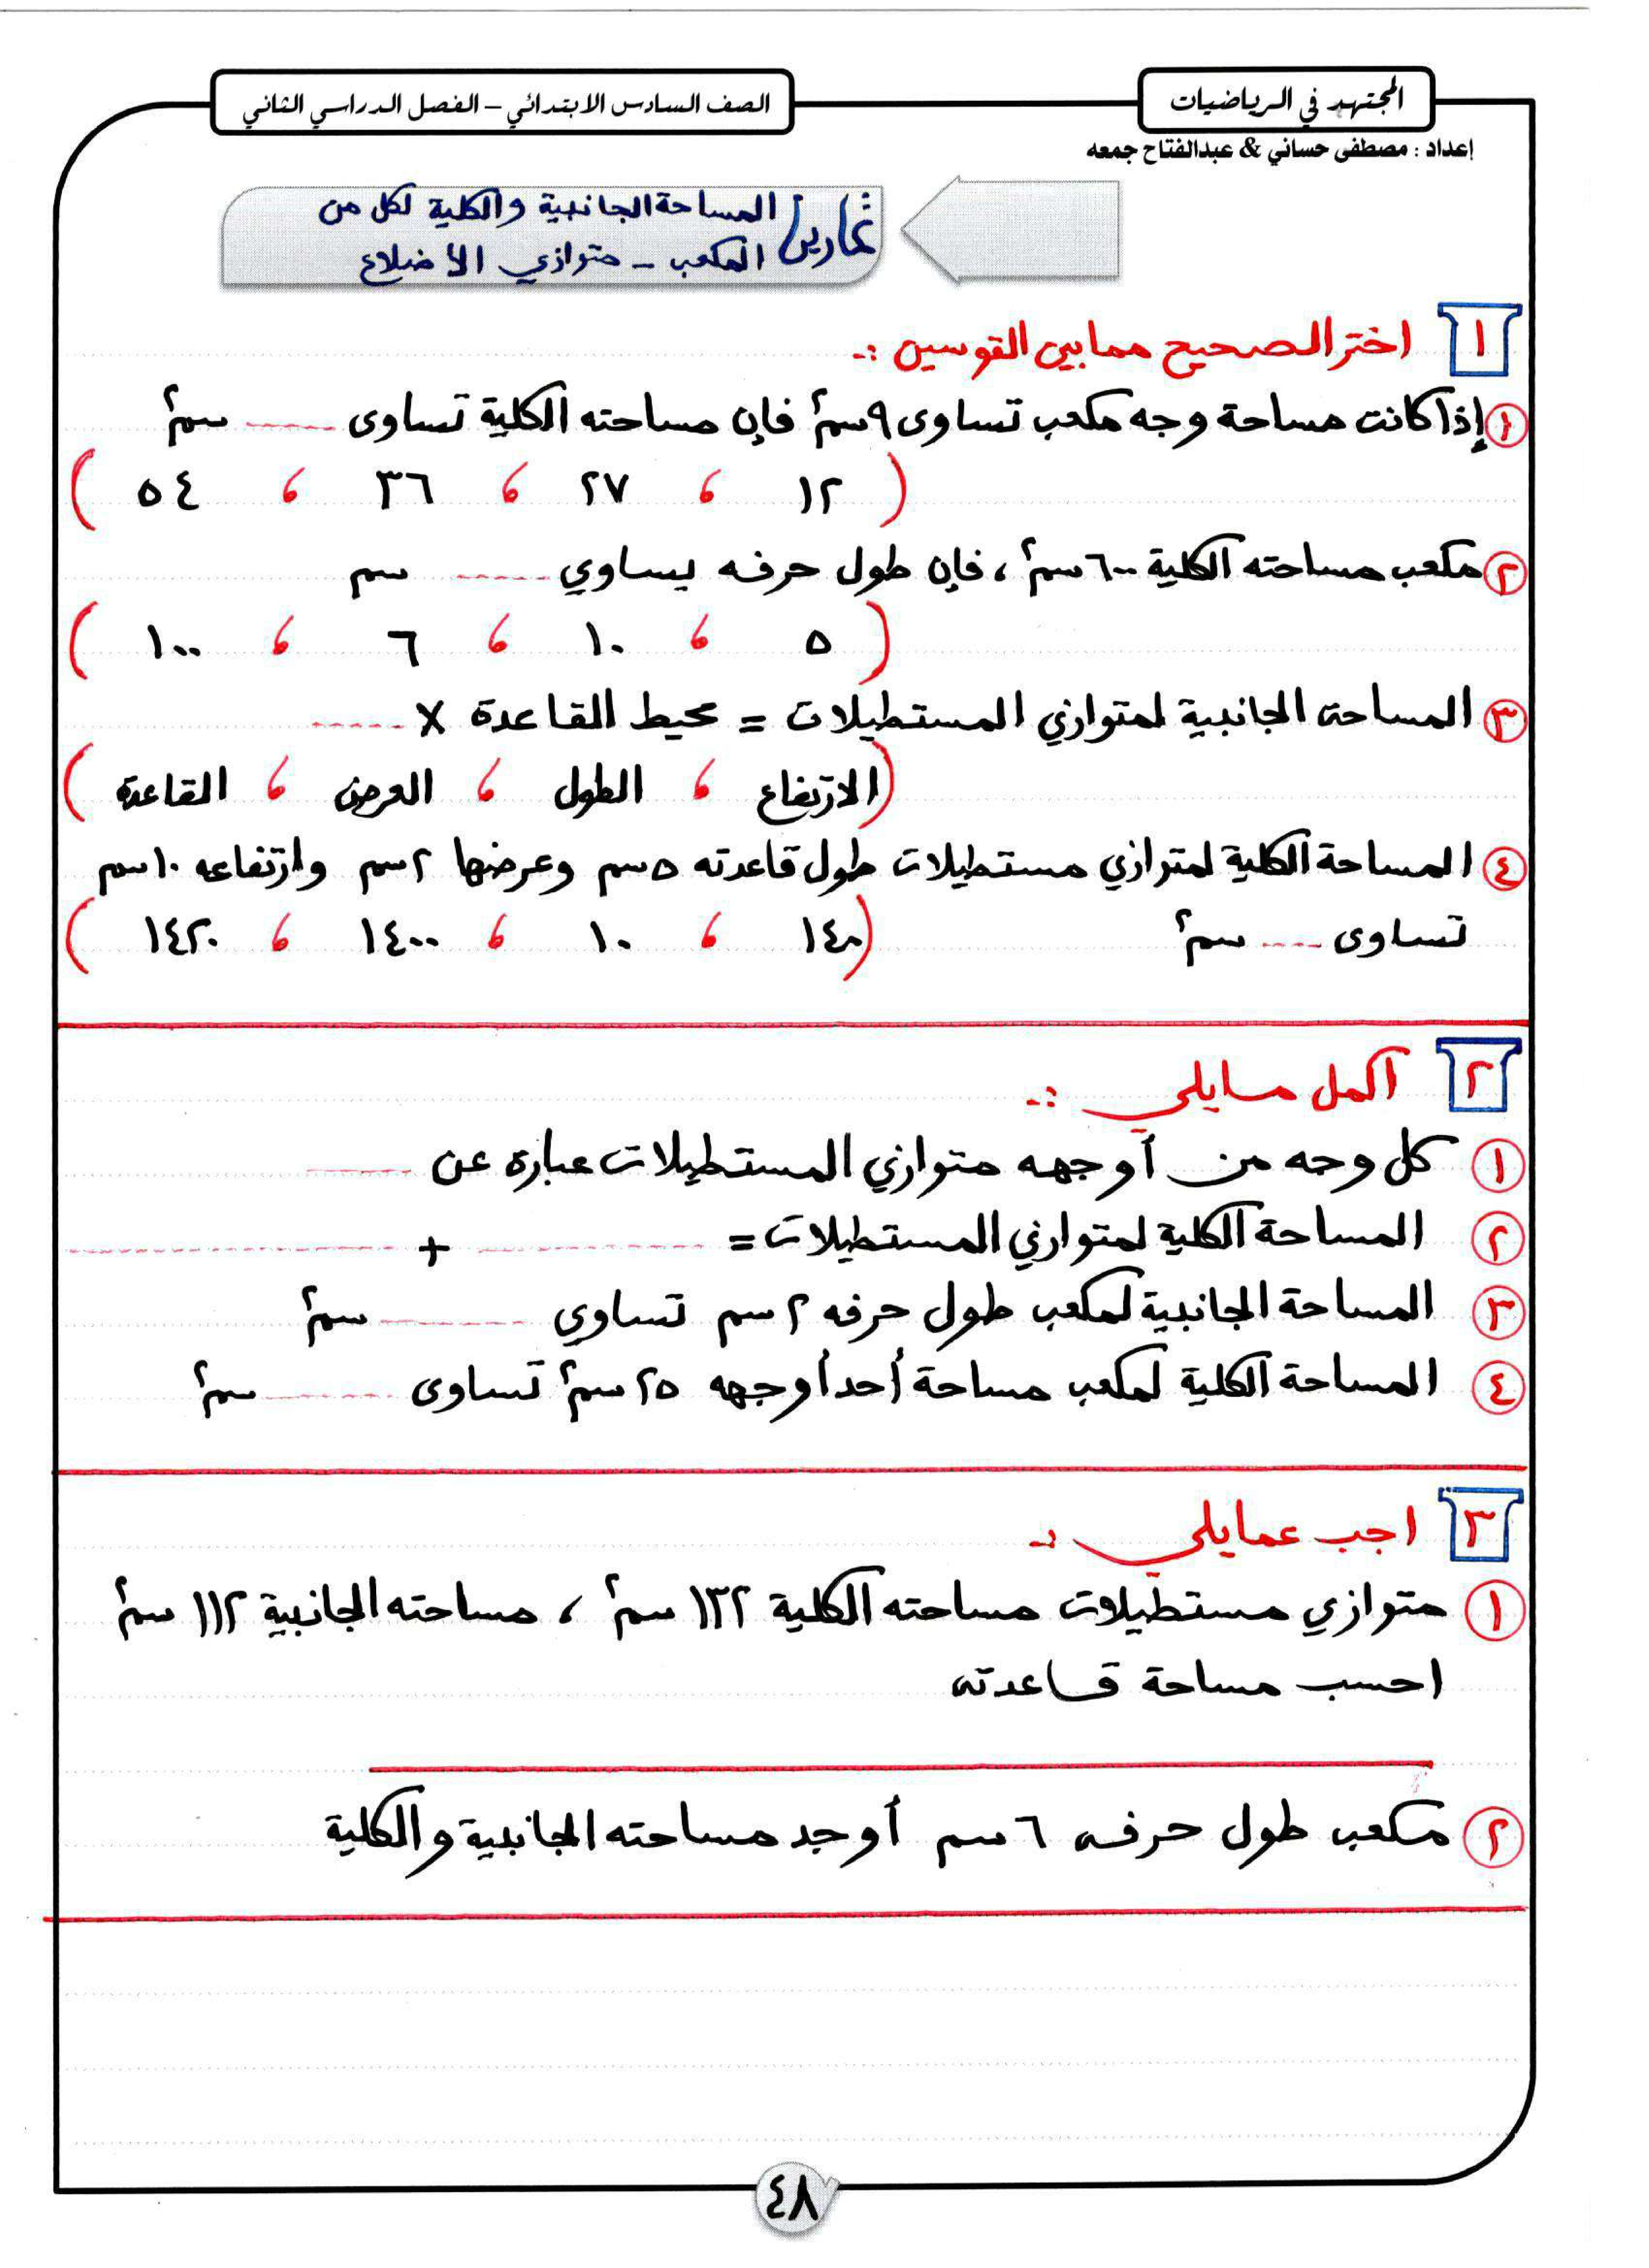 المجتهد في الرياضيات
الصف السادس الابتدائي – الفصل الدراسي الثاني
إعداد : مصطفى حساني & عبدالفتاح جمعه
تمارين المساحة الجانبية والكلية لكل من
المكعب - متوازي الأضلاع
١ اختر الصحيح مما بين القوسين :-
١ إذا كانت مساحة وجه مكعب تساوى ٩ سم٢ فإن مساحته الكلية تساوى ...... سم٢
( ١٢ ، ٢٧ ، ٣٦ ، ٥٤ )
٢ مكعب مساحته الكلية ٦٠٠ سم٢ ، فإن طول حرفه يساوي ...... سم
( ٥ ، ١٠ ، ٦ ، ١٠٠ )
٣ المساحة الجانبية لمتوازي المستطيلات = محيط القاعدة × ......
( الارتفاع ، الطول ، العرض ، القاعدة )
٤ المساحة الكلية لمتوازي مستطيلات طول قاعدته ٥ سم وعرضها ٢ سم وارتفاعه ١٠ سم
تساوى .... سم٢ ( ١٤٠ ، ١٠ ، ١٤٠٠ ، ١٤٢٠ )
٢ أكمل مايلي :-
١ كل وجه من أوجهه متوازي المستطيلات عبارة عن ......
٢ المساحة الكلية لمتوازي المستطيلات = ............ + ............
٣ المساحة الجانبية لمكعب طول حرفه ٢ سم تساوي ........ سم٢
٤ المساحة الكلية لمكعب مساحة أحد أوجهه ٢٥ سم٢ تساوى ........ سم٢
٣ اجب عمايلي :-
١ متوازي مستطيلات مساحته الكلية ١٣٢ سم٢ ، مساحته الجانبية ١١٢ سم٢
احسب مساحة قاعدته
٢ مكعب طول حرفه ٦ سم أوجد مساحته الجانبية والكلية
٤٨